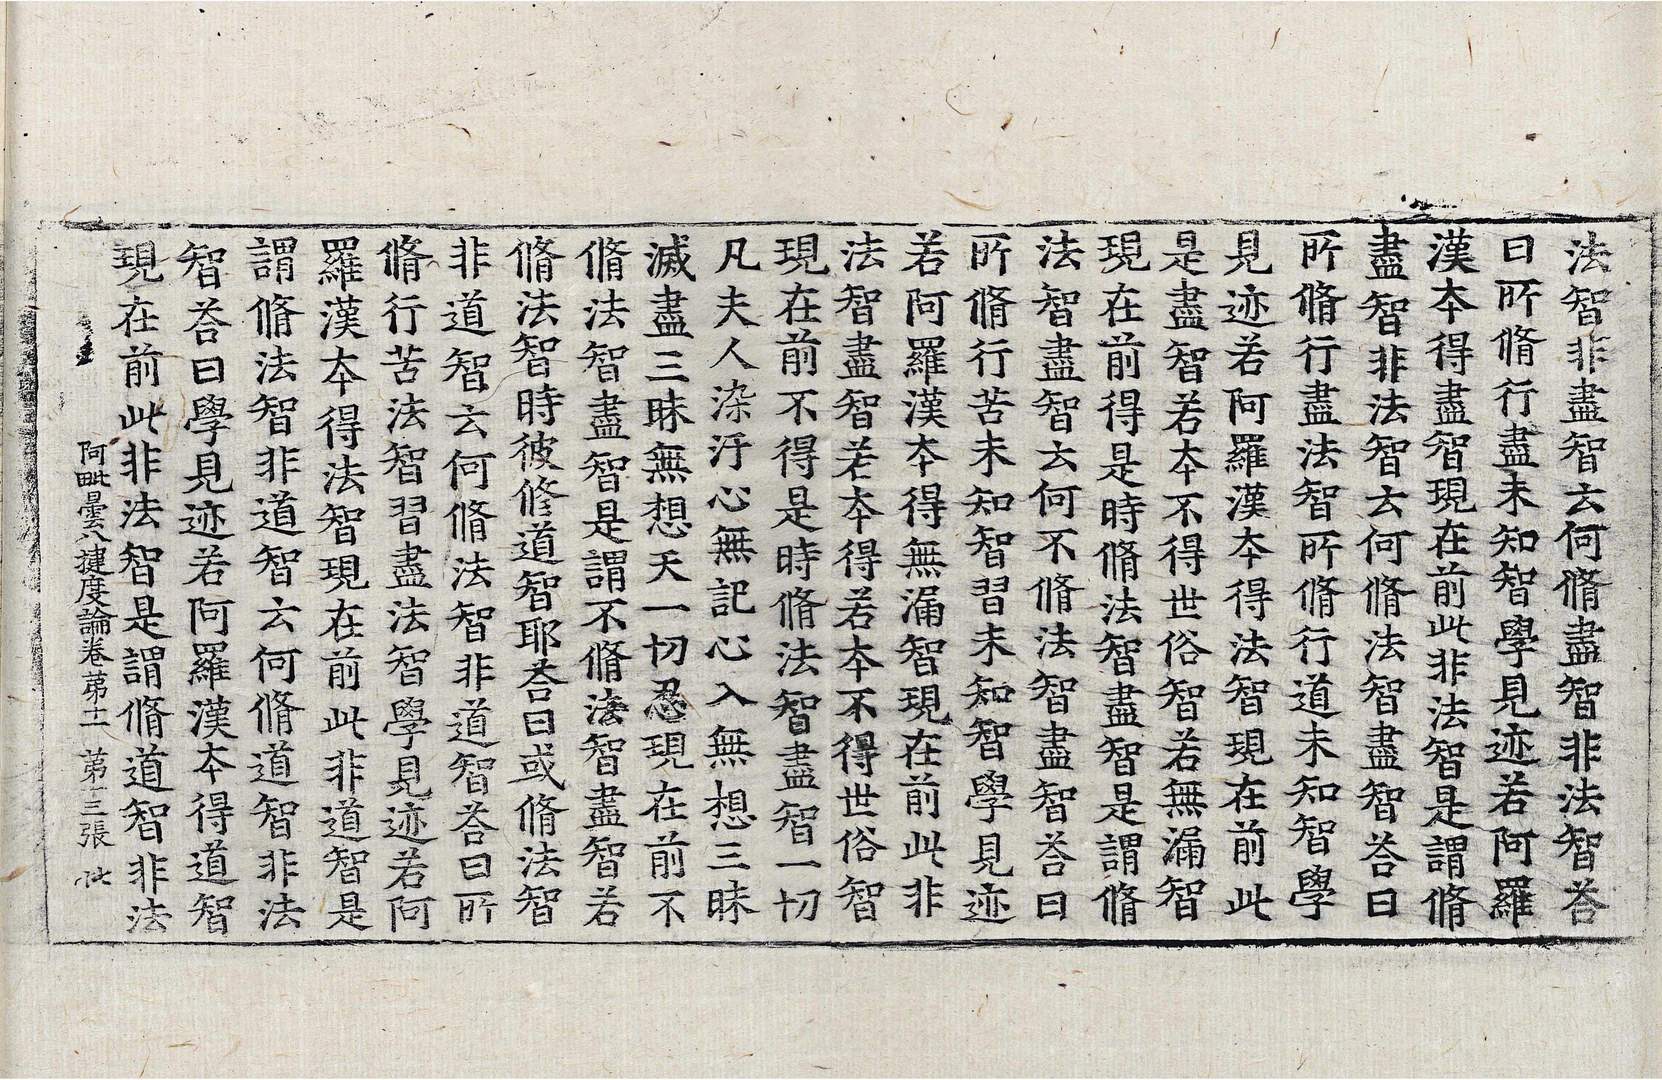 法智非盡智云何脩盡智非法智荅
曰所脩行盡未知智學見迹若阿羅
漢本得盡智現在前此非法智是謂脩
盡智非法智云何脩法智盡智荅曰
所脩行盡法智所脩行道未知智學
見迹若阿羅漢本得法智現在前此
是盡智若本不得世俗智若無漏智
現在前得是時脩法智盡智是謂脩
法智盡智云何不脩法智盡智荅曰
所脩行苦未知智習未知智學見迹
若阿羅漢本得無漏智現在前此非
法智盡智若本得若本不得世俗智
現在前不得是時脩法智盡智一切
凡夫人染汙心無記心入無想三昧
滅盡三昧無想天一切忍現在前不
脩法智盡智是謂不脩法智盡智若
脩法智時彼修道智耶荅曰或脩法智
非道智云何脩法智非道智荅曰所
脩行苦法智習盡法智學見迹若阿
羅漢本得法智現在前此非道智是
謂脩法智非道智云何脩道智非法
智荅曰學見迹若阿羅漢本得道智
現在前此非法智是謂脩道智非法
阿毗曇八揵度論卷苐十一 第十三張